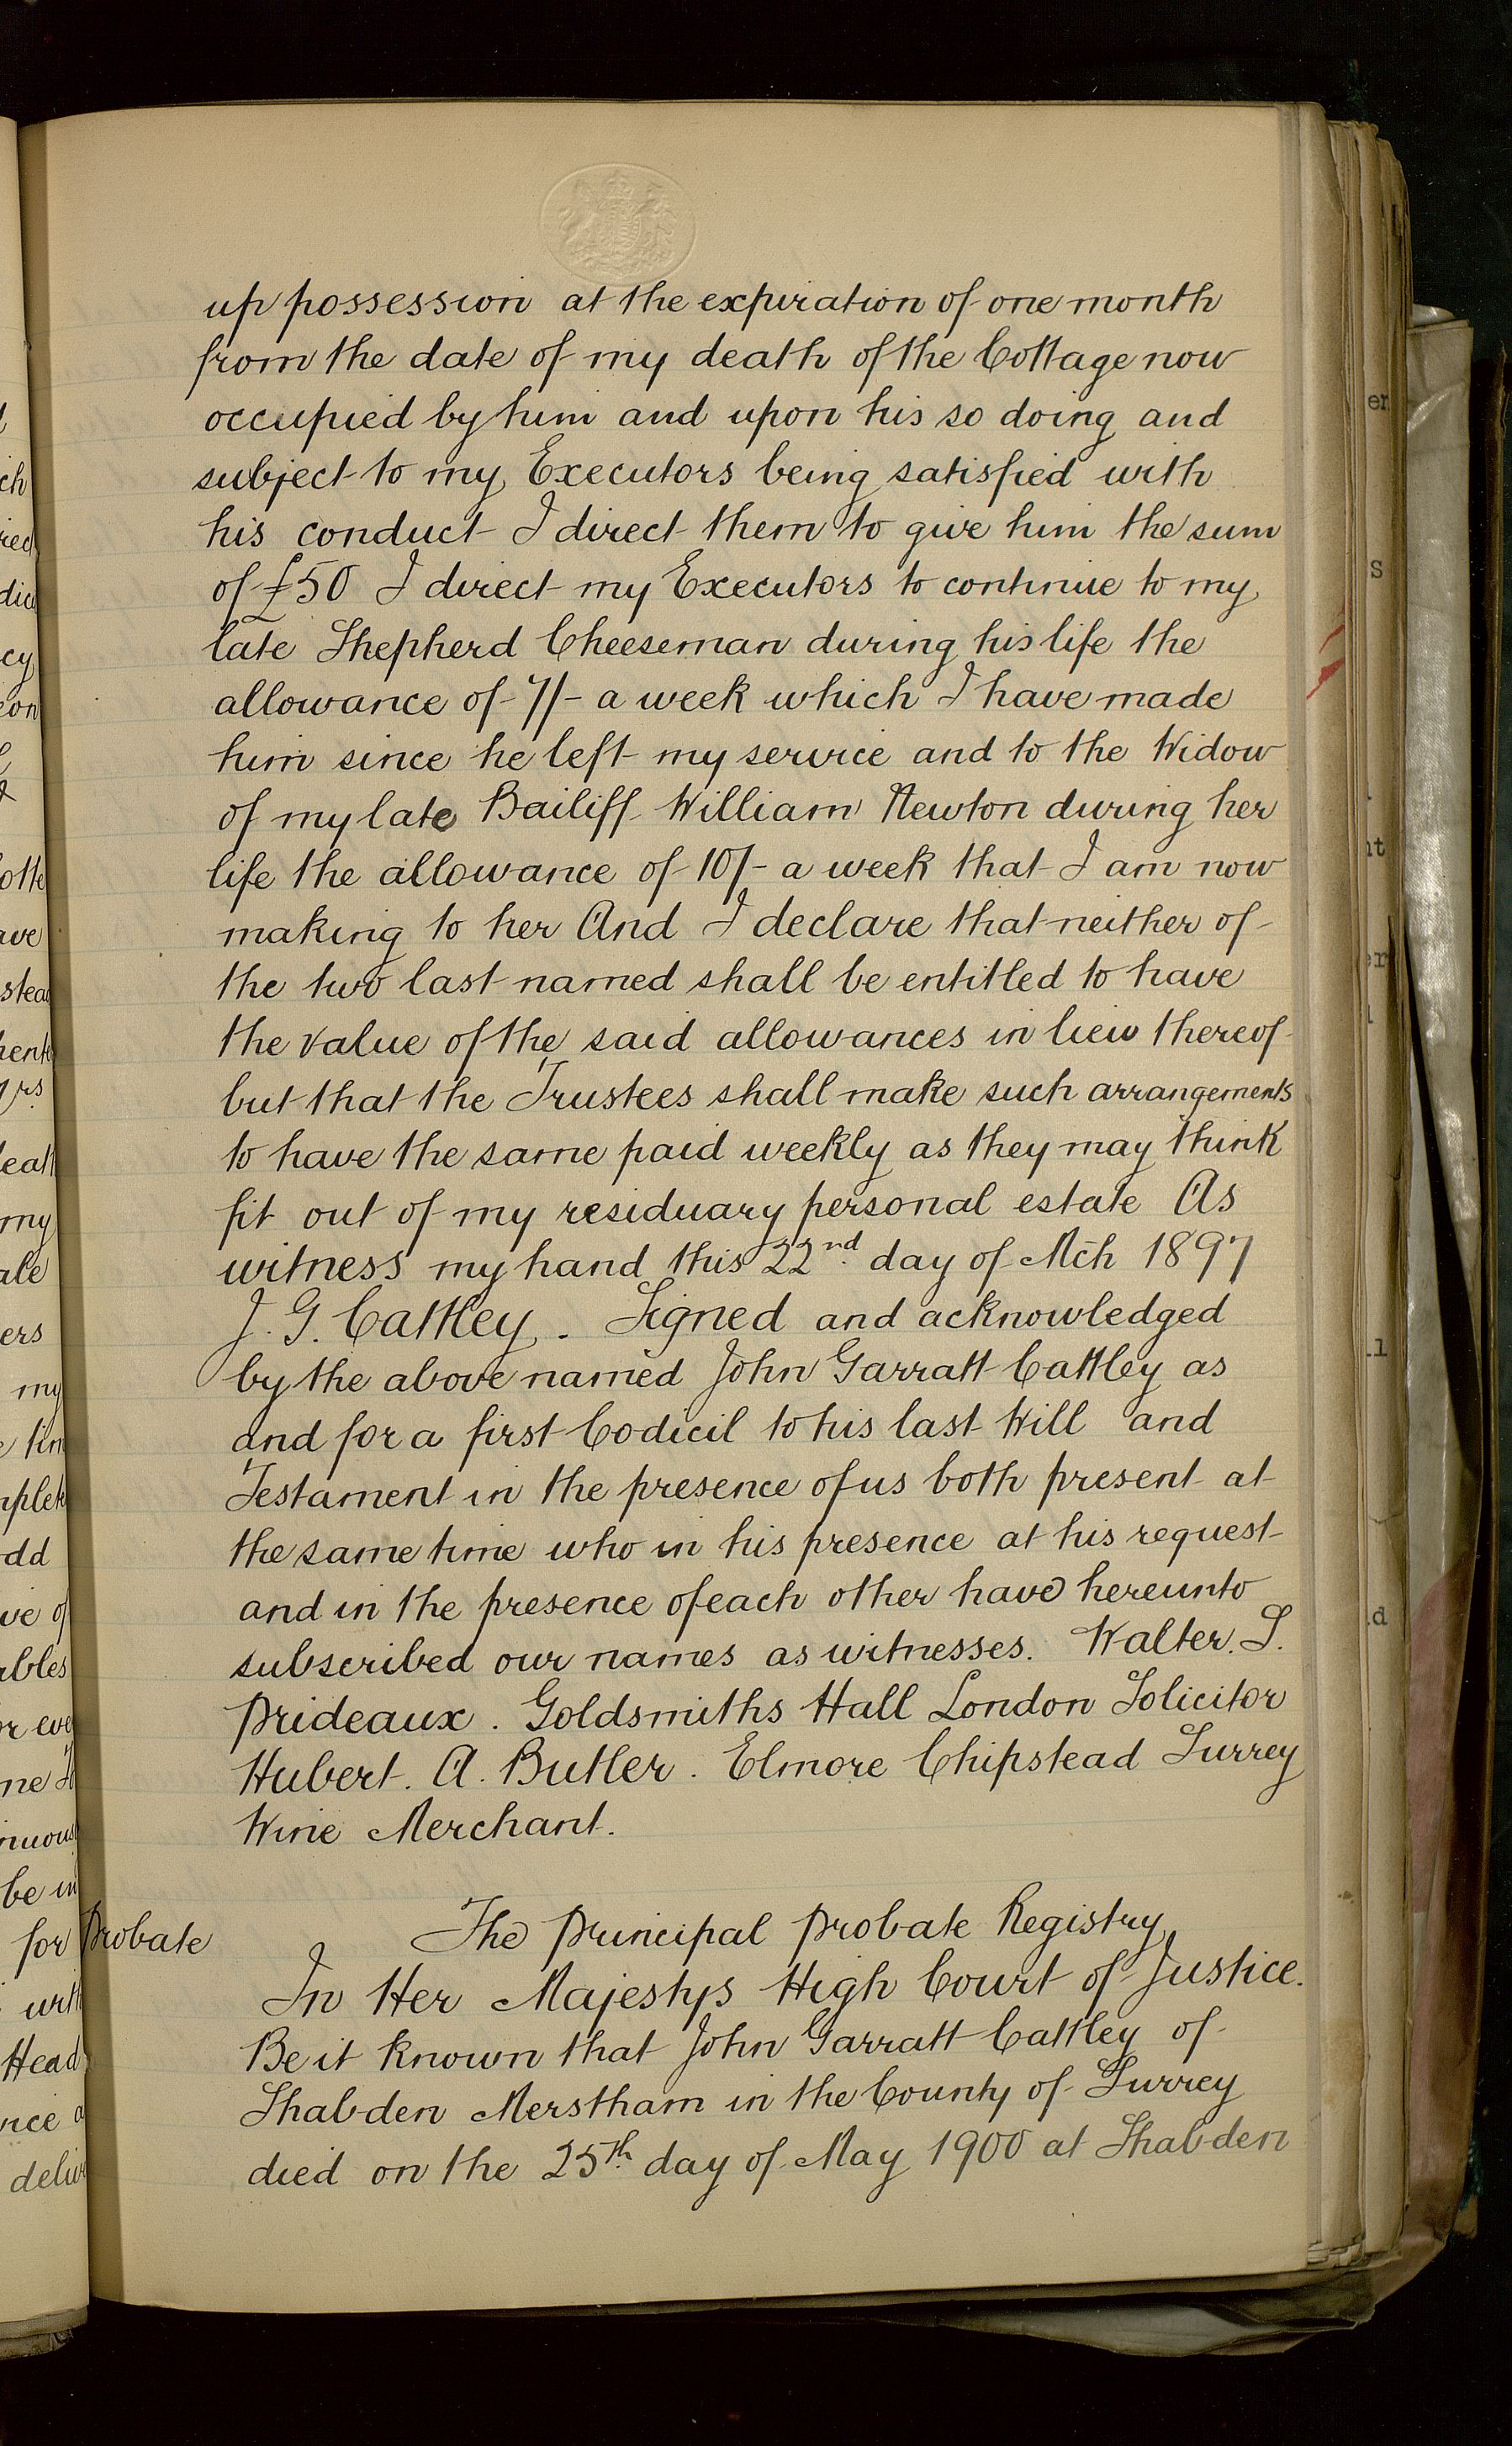 up possession at the expiration of one month
from the date of my death of the Cottage now
occupied by him and upon his so doing and
subject to my Executors being satisfied with
his conduct I direct them to give him the sum
of £50 I direct my Executors to continue to my
late Shepherd Cheeseman during his life the
allowance of 7/- a week which I have made
him since he left my service and to the Widow
of my late Bailiff William Newton during her
life the allowance of 10/- a week that I am now
making to her And I declare that neither of
the two last named shall be entitled to have
the value of the said allowances in lieu thereof
but that the Trustees shall make such arrangements
to have the same paid weekly as they may think
fit out of my residuary personal estate As
witness my hand this 22nd day of Mch 1897
J. G. Cattley. Signed and acknowledged
by the above named John Garratt Cattley as
and for a first Codicil to his last Will and
Testament in the presence of us both present at
the same time who in his presence at his request
and in the presence of each other have hereunto
subscribed our names as witnesses. Walter. S.
Prideaux. Goldsmiths Hall London Solicitor
Hubert. A. Butler. Elmore Chipstead Surrey
Wine Merchant.
Probate
The Principal Probate Registry
In Her Majestys High Court of Justice.
Be it known that John Garratt Cattley of
Shabden Merstham in the County of Surrey
died on the 25th day of May 1900 at Shabden